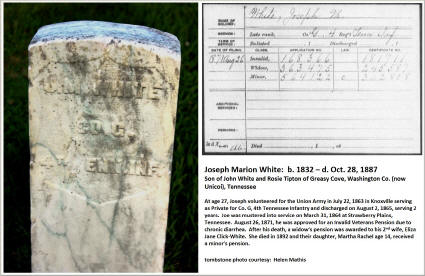 WHITE
CO. G.
TENN. INF.
NAME OF SOLDIER:
White, Joseph M.
SERVICE:
Late rank, Co. G, 4 Reg't Tenn Inf.
TERM OF SERVICE:
Enlisted Discharged
DATE OF FILING.
CLASS.
APPLICATION NO.
LAW.
CERTIFICATE NO.
Invalid,
Widow,
Minor,
ADDITIONAL SERVICES:
REMARKS:
Died
Joseph Marion White: b. 1832 – d. Oct. 28, 1887
Son of John White and Rosie Tipton of Greasy Cove, Washington Co. (now
Unicoi), Tennessee
At age 27, Joseph volunteered for the Union Army in July 22, 1863 in Knoxville serving
as Private for Co. G, 4th Tennessee Infantry and discharged on August 2, 1865, serving 2
years. Joe was mustered into service on March 31, 1864 at Strawberry Plains,
Tennessee. August 26, 1871, he was approved for an Invalid Veterans Pension due to
chronic diarrhea. After his death, a widow's pension was awarded to his 2nd wife, Eliza
Jane Click-White. She died in 1892 and their daughter, Martha Rachel age 14, received
a minor's pension.
tombstone photo courtesy: Helen Mathis